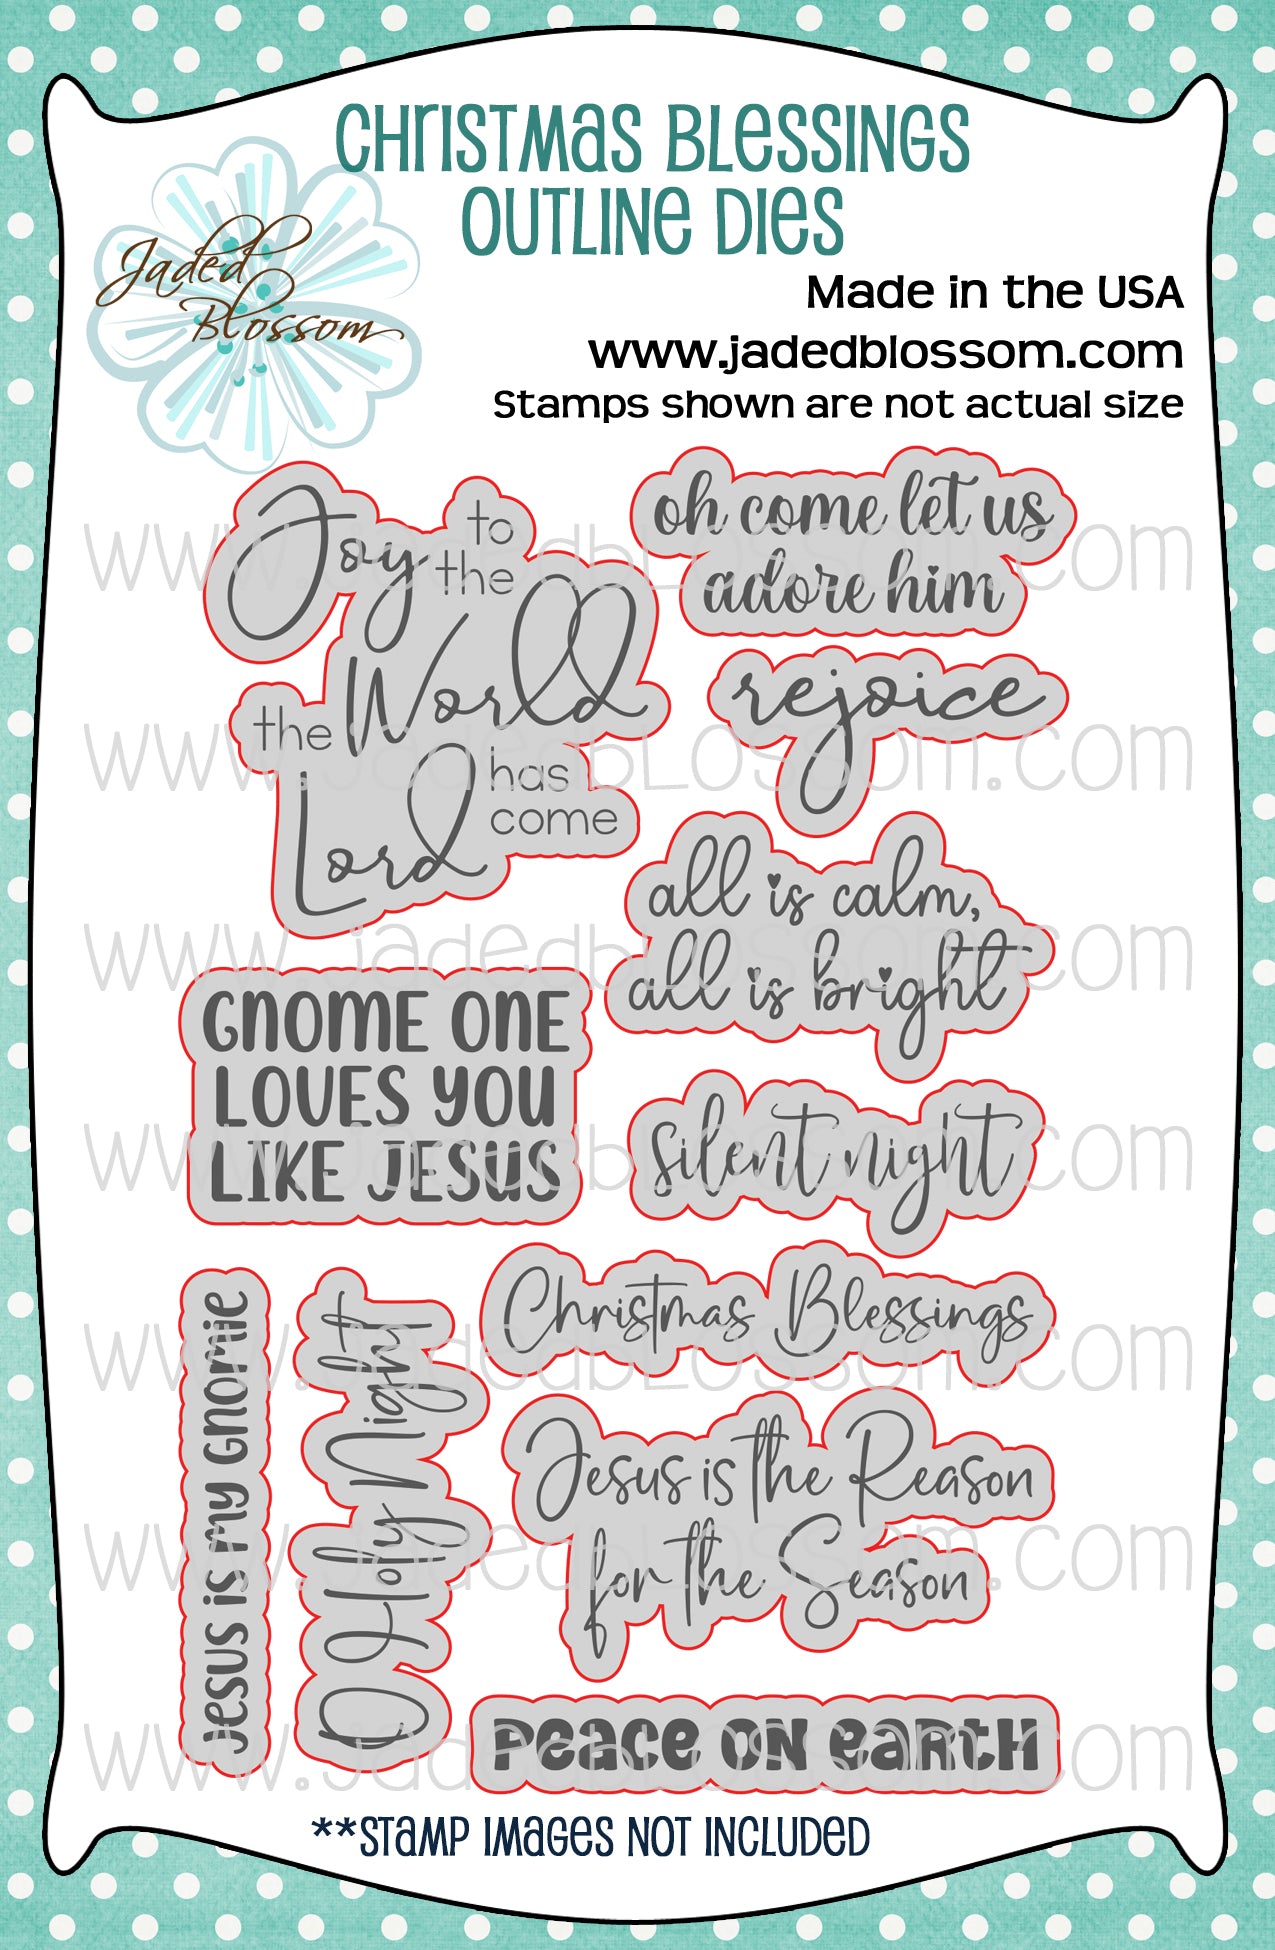 Christmas Blessings
Outline Dies
Jaded
Blossom
Made in the USA
www.jadedblossom.com
Stamps shown are not actual size
Joy to
the
World
the
Lord has
come
oh come let us
adore him
rejoice
all is calm,
all is bright
GNOME ONE
LOVES YOU
LIKE JESUS
silent night
Jesus is my gnomie
O Holy Night
Christmas Blessings
Jesus is the Reason
for the Season
Peace on earth
**Stamp images not included
www.jadedblossom.com
www.jadedblossom.com
www.jadedblossom.com
www.jadedblossom.com
www.jadedblossom.com
www.jadedblossom.com
www.jadedblossom.com